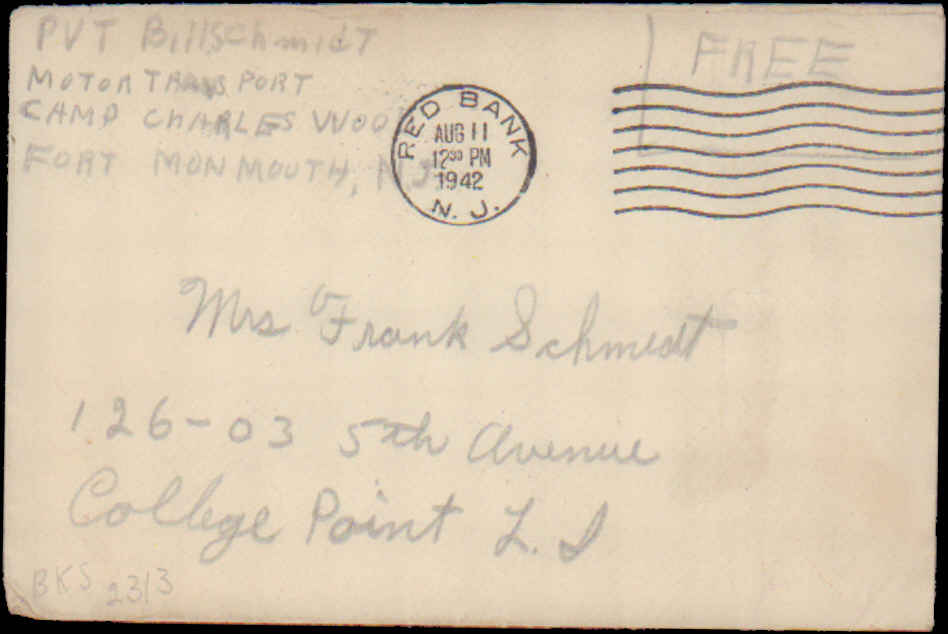 PVT Bill Schmidt
MOTOR TRANSPORT
CAMP CHARLES WOO
FORT MONMOUTH, N.J.
FREE
RED BANK
AUG 11
12 30 PM
1942
N. J.
Mrs Frank Schmidt
126-03 5th Avenue
College Point L. I
BKS 2313